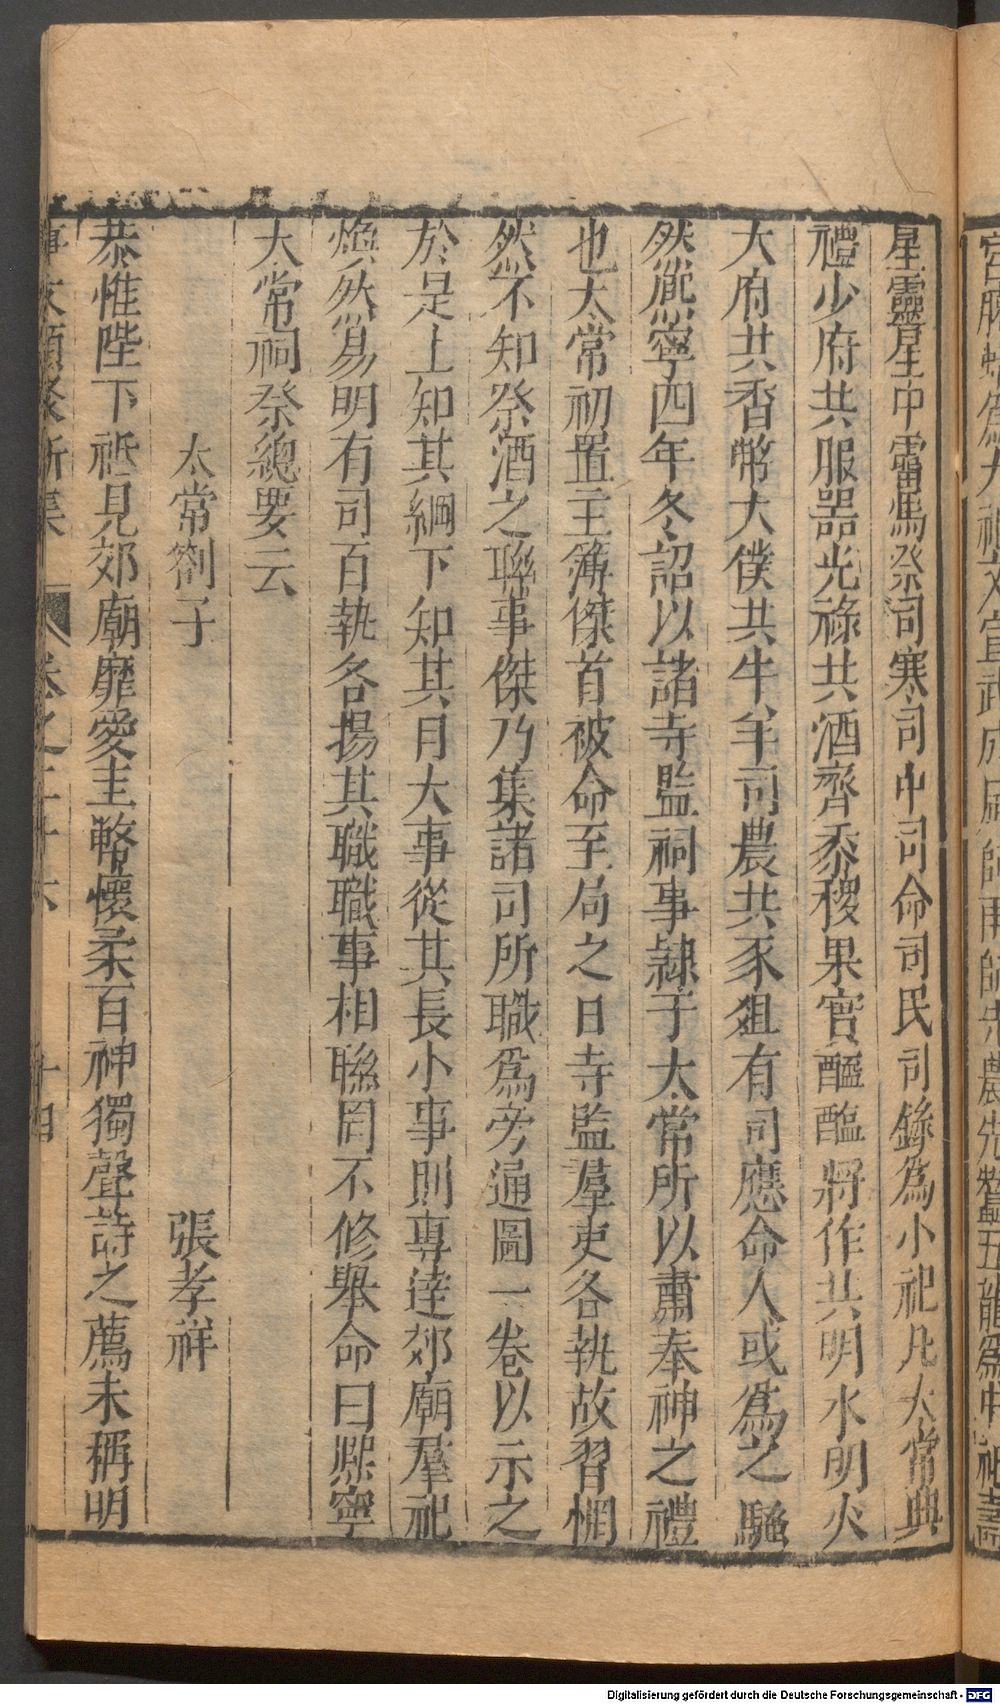 星靈星中霤馬祭司寒司中司命司民司錄為小祀凡太常典
禮少府共服器光祿共酒齊黍稷果實醯醢將作共明水明火
大府共香幣大僕共牛羊司農共豕俎有司應命人或為之騷
然熈寧四年冬詔以諸寺監祠事隷于太常所以肅奉神之禮
也太常初置主簿傑首被命至局之日寺監羣吏各執故習惘
然不知祭酒之聯事傑乃集諸司所職爲旁通圖一卷以示之
於是上知其綱下知其月大事從其長小事則專達郊廟羣祀
煥然易明有司百執各揚其職職事相聯罔不修舉命曰熈寧
大常祠祭總要云
太常劄子
張孝祥
恭惟陛下祗見郊廟靡愛圭幣懷柔百神獨聲詩之薦未稱明
事文類聚新集
卷之二十六
十四
Digitalisierung gefördert durch die Deutsche Forschungsgemeinschaft - DFG